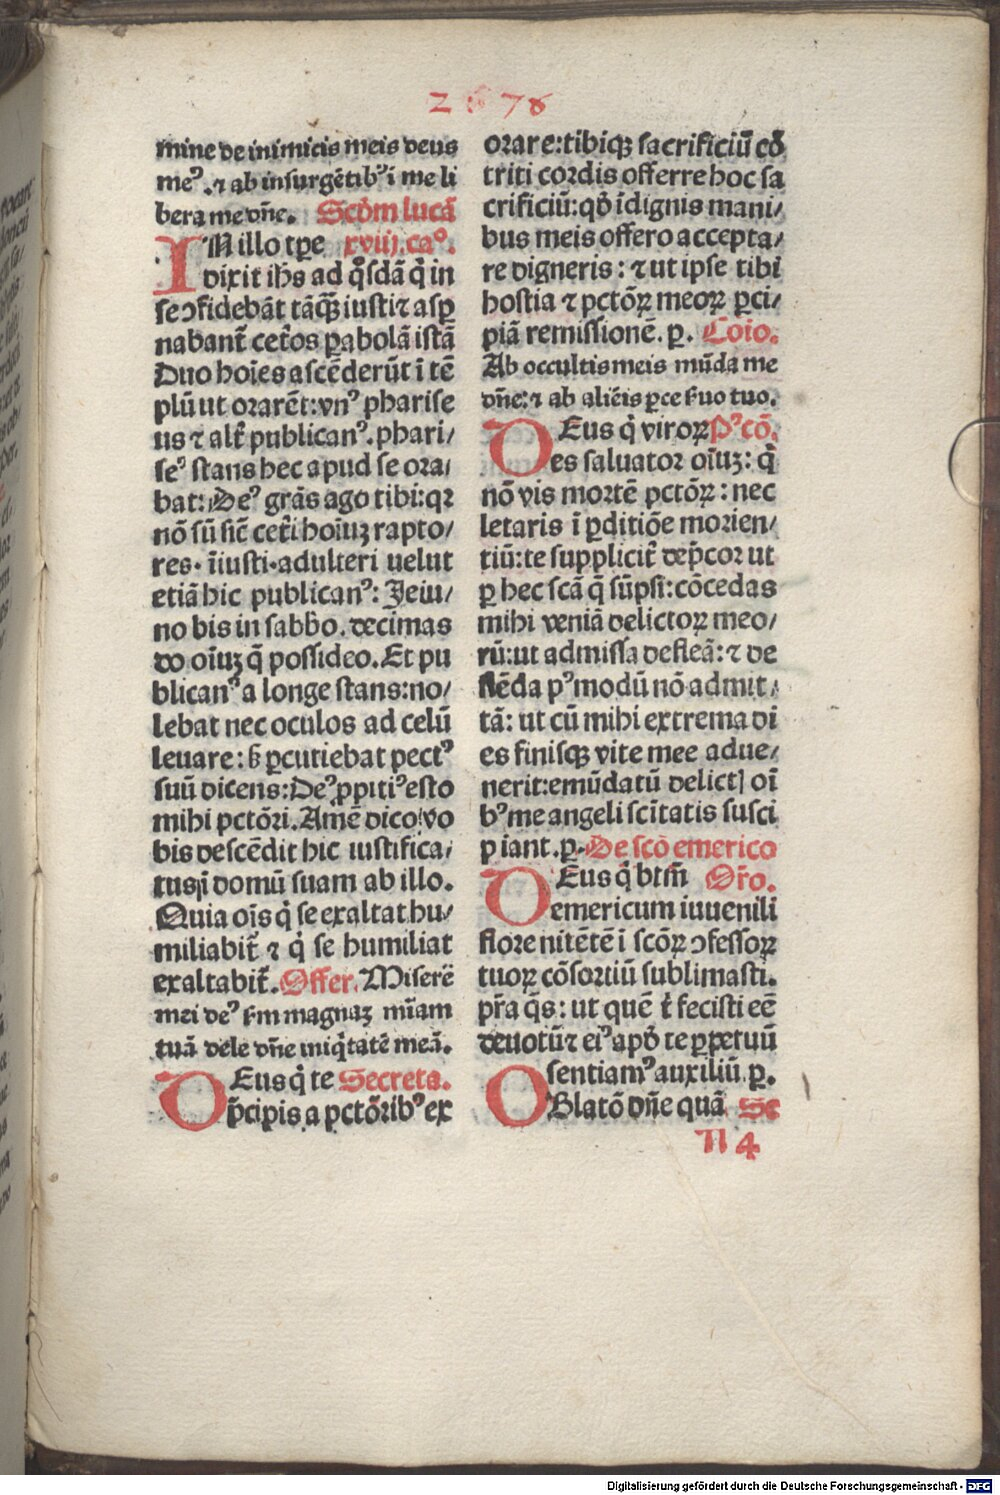 2 76
mine de inimicis meis deus
meꝰ. ⁊ ab insurgētibꝰ i me li
bera me dn̄e. Scd̄m lucā
IN illo tꝑe xviij. caº.
dixit ih̄s ad qͦsdā qͥ in
se ↄfidebāt tāqȝ iusti ⁊ aspͣ
nabant̄ cet̄os ꝑabolā istā
Duo hoīes ascēderūt ī tē
plū ut orarēt: vnꝰ pharise
us ⁊ alt̄ publicanꝰ. phari/
seꝰ stans hec apud se ora/
bat: Deꝰ grās ago tibi: qꝛ
nō sū sic̄ cet̄i hoīuȝ rapto/
res. īiusti. adulteri uelut
etiā hic publicanꝰ: Jeiu/
no bis in sabb̄o. decimas
do oīuȝ q̄ possideo. Et pu
blicanꝰ a longe stans: no/
lebat nec oculos ad celū
leuare: ß ꝑcutiebat pectꝰ
suū dicens: Deꝰ ꝓpitiꝰ esto
mihi pctōri. Amē dico vo
bis descēdit hic iustifica/
tus i domū suam ab illo.
Quia oīs qͥ se exaltat hu/
miliabit̄ ⁊ qͥ se humiliat
exaltabit̄. Offer. Miserē
mei deꝰ ẜm magnaȝ mīam
tuā dele dn̄e iniqͥtatē meā.
DEus qͥ te Secreta.
p̄cipis a pctōribꝰ ex
orare: tibiqȝ sacrificiū cō
triti cordis offerre hoc sa
crificiū: qd̄ īdignis mani/
bus meis offero accepta/
re digneris: ⁊ ut ipse tibi
hostia ⁊ pctōꝝ meoꝝ ꝑci/
piā remissionē. ꝑ. Cōio.
Ab occultis meis mūda me
dn̄e: ⁊ ab aliēis ꝑce ẜuo tuo.
DEus qͥ viroꝝ Pꝰcō.
es saluator oīuȝ: qͥ
nō vis mortē pctōꝝ: nec
letaris ī ꝑditiōe morien/
tiū: te supplicit̄ dep̄cor ut
ꝑ hec scā q̄ sūpsi: cōcedas
mihi veniā delictoꝝ meo/
rū: ut admissa defleā: ⁊ de
flēda pꝰmodū nō admit/
tā: ut cū mihi extrema di
es finisqȝ vite mee adue/
nerit: emūdatū delictꝭ oī
bꝰ me angeli scītatis susci
piant. ꝑ. De scō emerico
DEus qͥ btm̄ Or̄o.
emericum iuuenili
flore nitētē i scōꝝ ↄfessoꝝ
tuoꝝ cōsortiū sublimasti.
pr̄a q̄s: ut quē t̄ fecisti eē
deuotū ⁊ eiꝰ apd̄ te ꝑpetuū
sentiamꝰ auxiliū. ꝑ.
OBlatō dn̄e quā Se
n 4
Digitalisierung gefördert durch die Deutsche Forschungsgemeinschaft - DFG